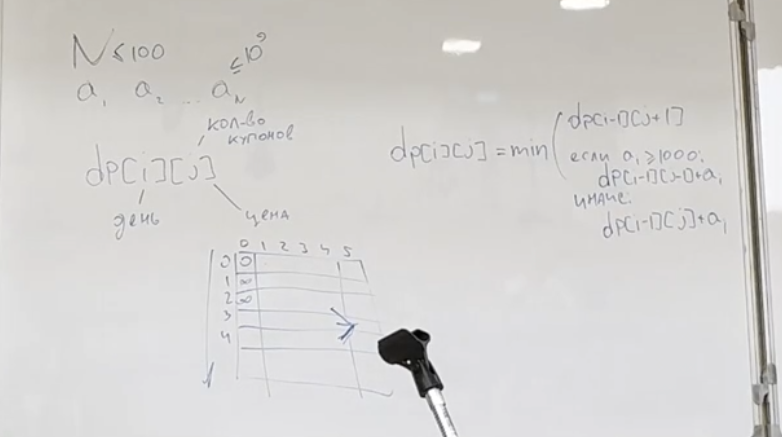 N ≤ 100
a₁ a₂ ... a_N ≤ 10⁹
кол-во
купонов
dp[i][j]
день
цена
dp[i][j] = min(
dp[i-1][j+1]
если a_i ≥ 1000:
dp[i-1][j-1]+a_i
иначе:
dp[i-1][j]+a_i
0 1 2 3 4 5
0 0
1 ∞
2 ∞
3
4